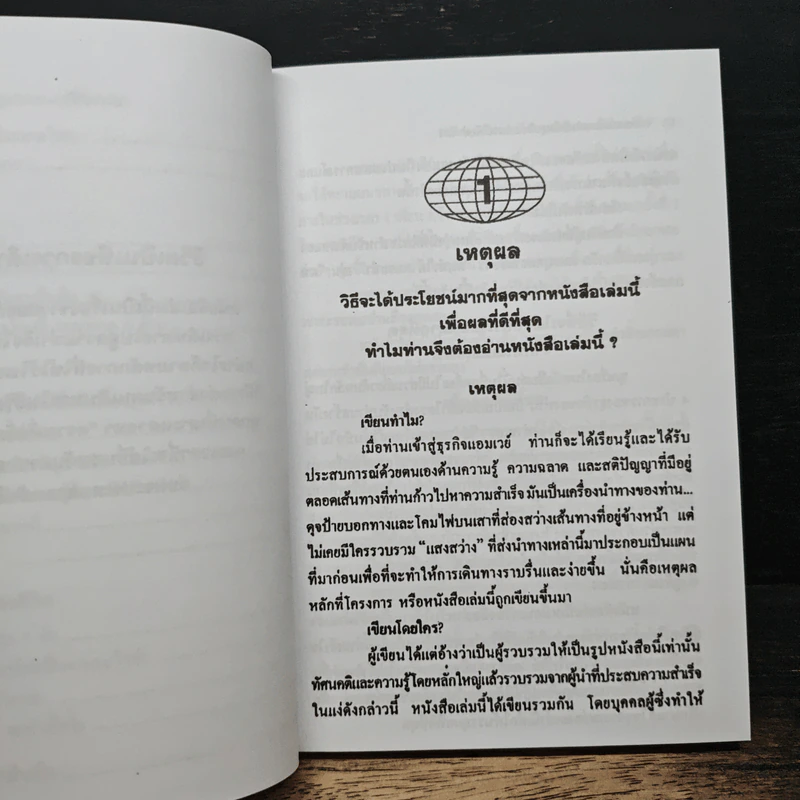 1
เหตุผล
วิธีจะได้ประโยชน์มากที่สุดจากหนังสือเล่มนี้
เพื่อผลที่ดีที่สุด
ทำไมท่านจึงต้องอ่านหนังสือเล่มนี้ ?
เหตุผล
เขียนทำไม?
เมื่อท่านเข้าสู่ธุรกิจแอมเวย์ ท่านก็จะได้เรียนรู้และได้รับ
ประสบการณ์ด้วยตนเองด้านความรู้ ความฉลาด และสติปัญญาที่มีอยู่
ตลอดเส้นทางที่ท่านก้าวไปหาความสำเร็จ มันเป็นเครื่องนำทางของท่าน...
ดุจป้ายบอกทางและโคมไฟบนเสาที่ส่องสว่างเส้นทางที่อยู่ข้างหน้า แต่
ไม่เคยมีใครรวบรวม “แสงสว่าง” ที่ส่งนำทางเหล่านี้มาประกอบเป็นแผน
ที่มาก่อนเพื่อที่จะทำให้การเดินทางราบรื่นและง่ายขึ้น นั่นคือเหตุผล
หลักที่โครงการ หรือหนังสือเล่มนี้ถูกเขียนขึ้นมา
เขียนโดยใคร?
ผู้เขียนได้แต่อ้างว่าเป็นผู้รวบรวมให้เป็นรูปหนังสือนี้เท่านั้น
ทัศนคติและความรู้โดยหลั่กใหญ่แล้วรวบรวมจากผู้นำที่ประสบความสำเร็จ
ในแง่ดังกล่าวนี้ หนังสือเล่มนี้ได้เขียนรวมกัน โดยบุคคลผู้ซึ่งทำให้